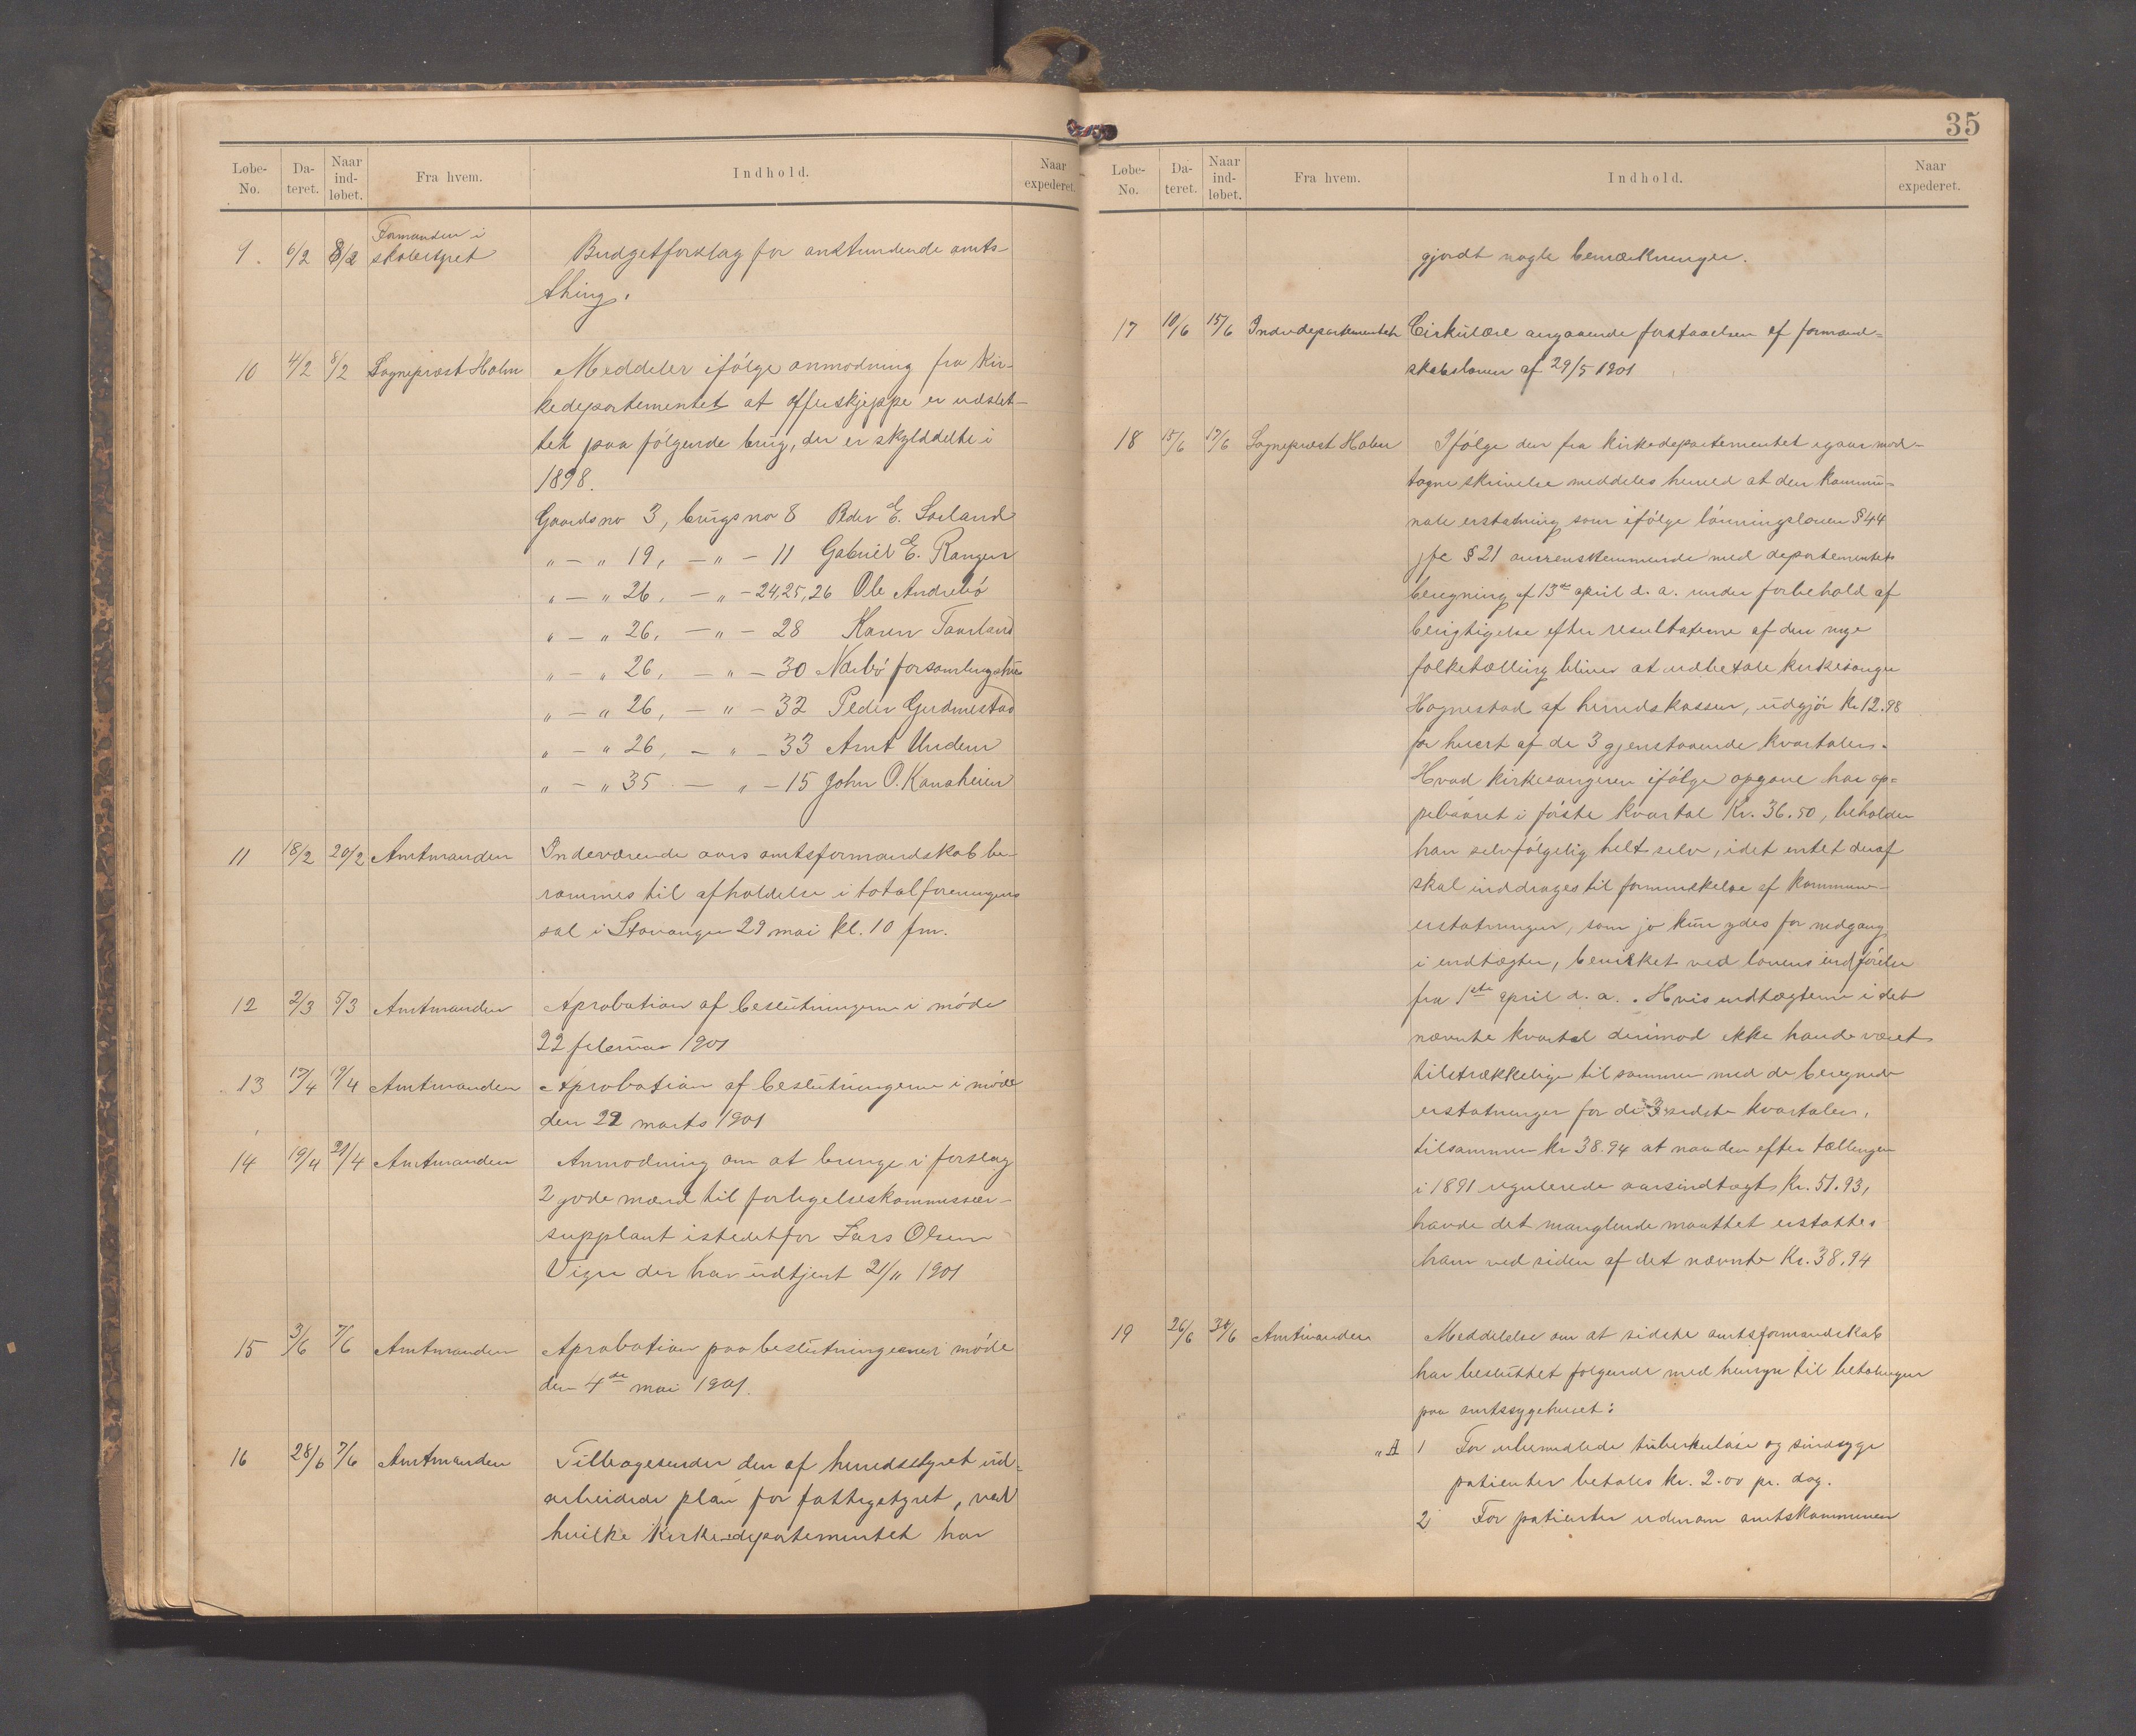 35
Løbe-No. Da-teret. Naar ind-løbet. Fra hvem. Indhold. Naar expederet.
9. 6/2 8/2 Formanden i skolestyret Budgetforslag for anstundende amts-
thing.
10 4/2 8/2 Sogneprest Holm Meddeler ifølge anmodning fra Kir-
kedepartementet at offerskjeppe er udslet-
tet paa følgende brug, der er skylddelte i
1898.
Gaards no 3, brugs no 8 Peder E. Sørland
" — " 19, — " — 11 Gabriel E. Rangen
" — " 26, — " — 24,25,26 Ole Andrebø
" — " 26, — " — 28 Karen Taarland
" — " 26, — " — 30 Nærbø forsamlingshus
" — " 26, — " — 32 Peder Gudmestad
" — " 26, — " — 33 Arnt Undem
" — " 35 — " — 15 John O. Kanaheien
11 18/2 20/2 Amtmanden Indeværende aars amtsformandskab be-
rammes til afholdelse i totalforeningens
sal i Stavanger 29 mai kl. 10 fm.
12 2/3 5/3 Amtmanden Aprobation af beslutningerne i møde
22 februar 1901
13 17/4 19/4 Amtmanden Aprobation af beslutningerne i møde
den 22 marts 1901
14 19/4 21/4 Amtmanden Anmodning om at bringe i forslag
2 gode mænd til forligelseskommissær-
supplant istedetfor Lars Olsen
Vigre der har udtjent 21/11 1901
15 3/6 7/6 Amtmanden Aprobation paa beslutningerne i møde
den 4de mai 1901.
16 28/6 7/6 Amtmanden Tilbagesender den af herredsstyret ud-
arbeidede plan for fattigstyret, ved
hvilke Kirkedepartementet har
Løbe-No. Da-teret. Naar ind-løbet. Fra hvem. Indhold. Naar expederet.
gjordt nogle bemærkninger.
17 10/6 15/6 Indredepartementet Cirkulære angaaende forstaaelsen af formand-
skabsloven af 29/5 1901
18 15/6 17/6 Sogneprest Holm Ifølge den fra kirkedepartementet igaar mod-
tagne skrivelse meddeles herved at den kommu-
nale erstatning som ifølge lønningsloven § 44
jfr § 21 overensstemmende med departementets
beregning af 13de april d. a. under forbehold af
berigtigelse efter resultaterne af den nye
folketælling bliver at udbetale kirkesanger
Hognestad af herredskassen, udgjør Kr 12.98
for hvert af de 3 gjenstaaende kvartaler.
Hvad kirkesangeren ifølge opgave har op-
pebaaret i første kvartal Kr. 36.50, beholder
han selvfølgelig helt selv, idet intet deraf
skal inddrages til formindskelse af kommune-
erstatningen, som jo kun ydes for nedgang
i indtægter, bevirket ved lovens indførelse
fra 1ste april d. a. . Hvis indtægterne i det
nævnte kvartal derimod ikke havde været
tilstrækkelige til sammen med de beregnede
erstatninger for de 3 sidste kvartaler,
tilsammen kr 38.94 at naa den efter tællingen
i 1891 regulerede aarsindtægt Kr. 51.93,
havde det manglende maattet erstattes
ham ved siden af det nævnte Kr. 38.94
19 26/6 30/6 Amtmanden Meddelelse om at sidste amtsformandskab
har besluttet følgende med hensyn til betalingen
paa amtssygehuset:
"A 1 For ubemidlede tuberkuløse og sindssyge
patienter betales kr. 2.00 pr. dag.
2 For patienter udenom amtskommunen